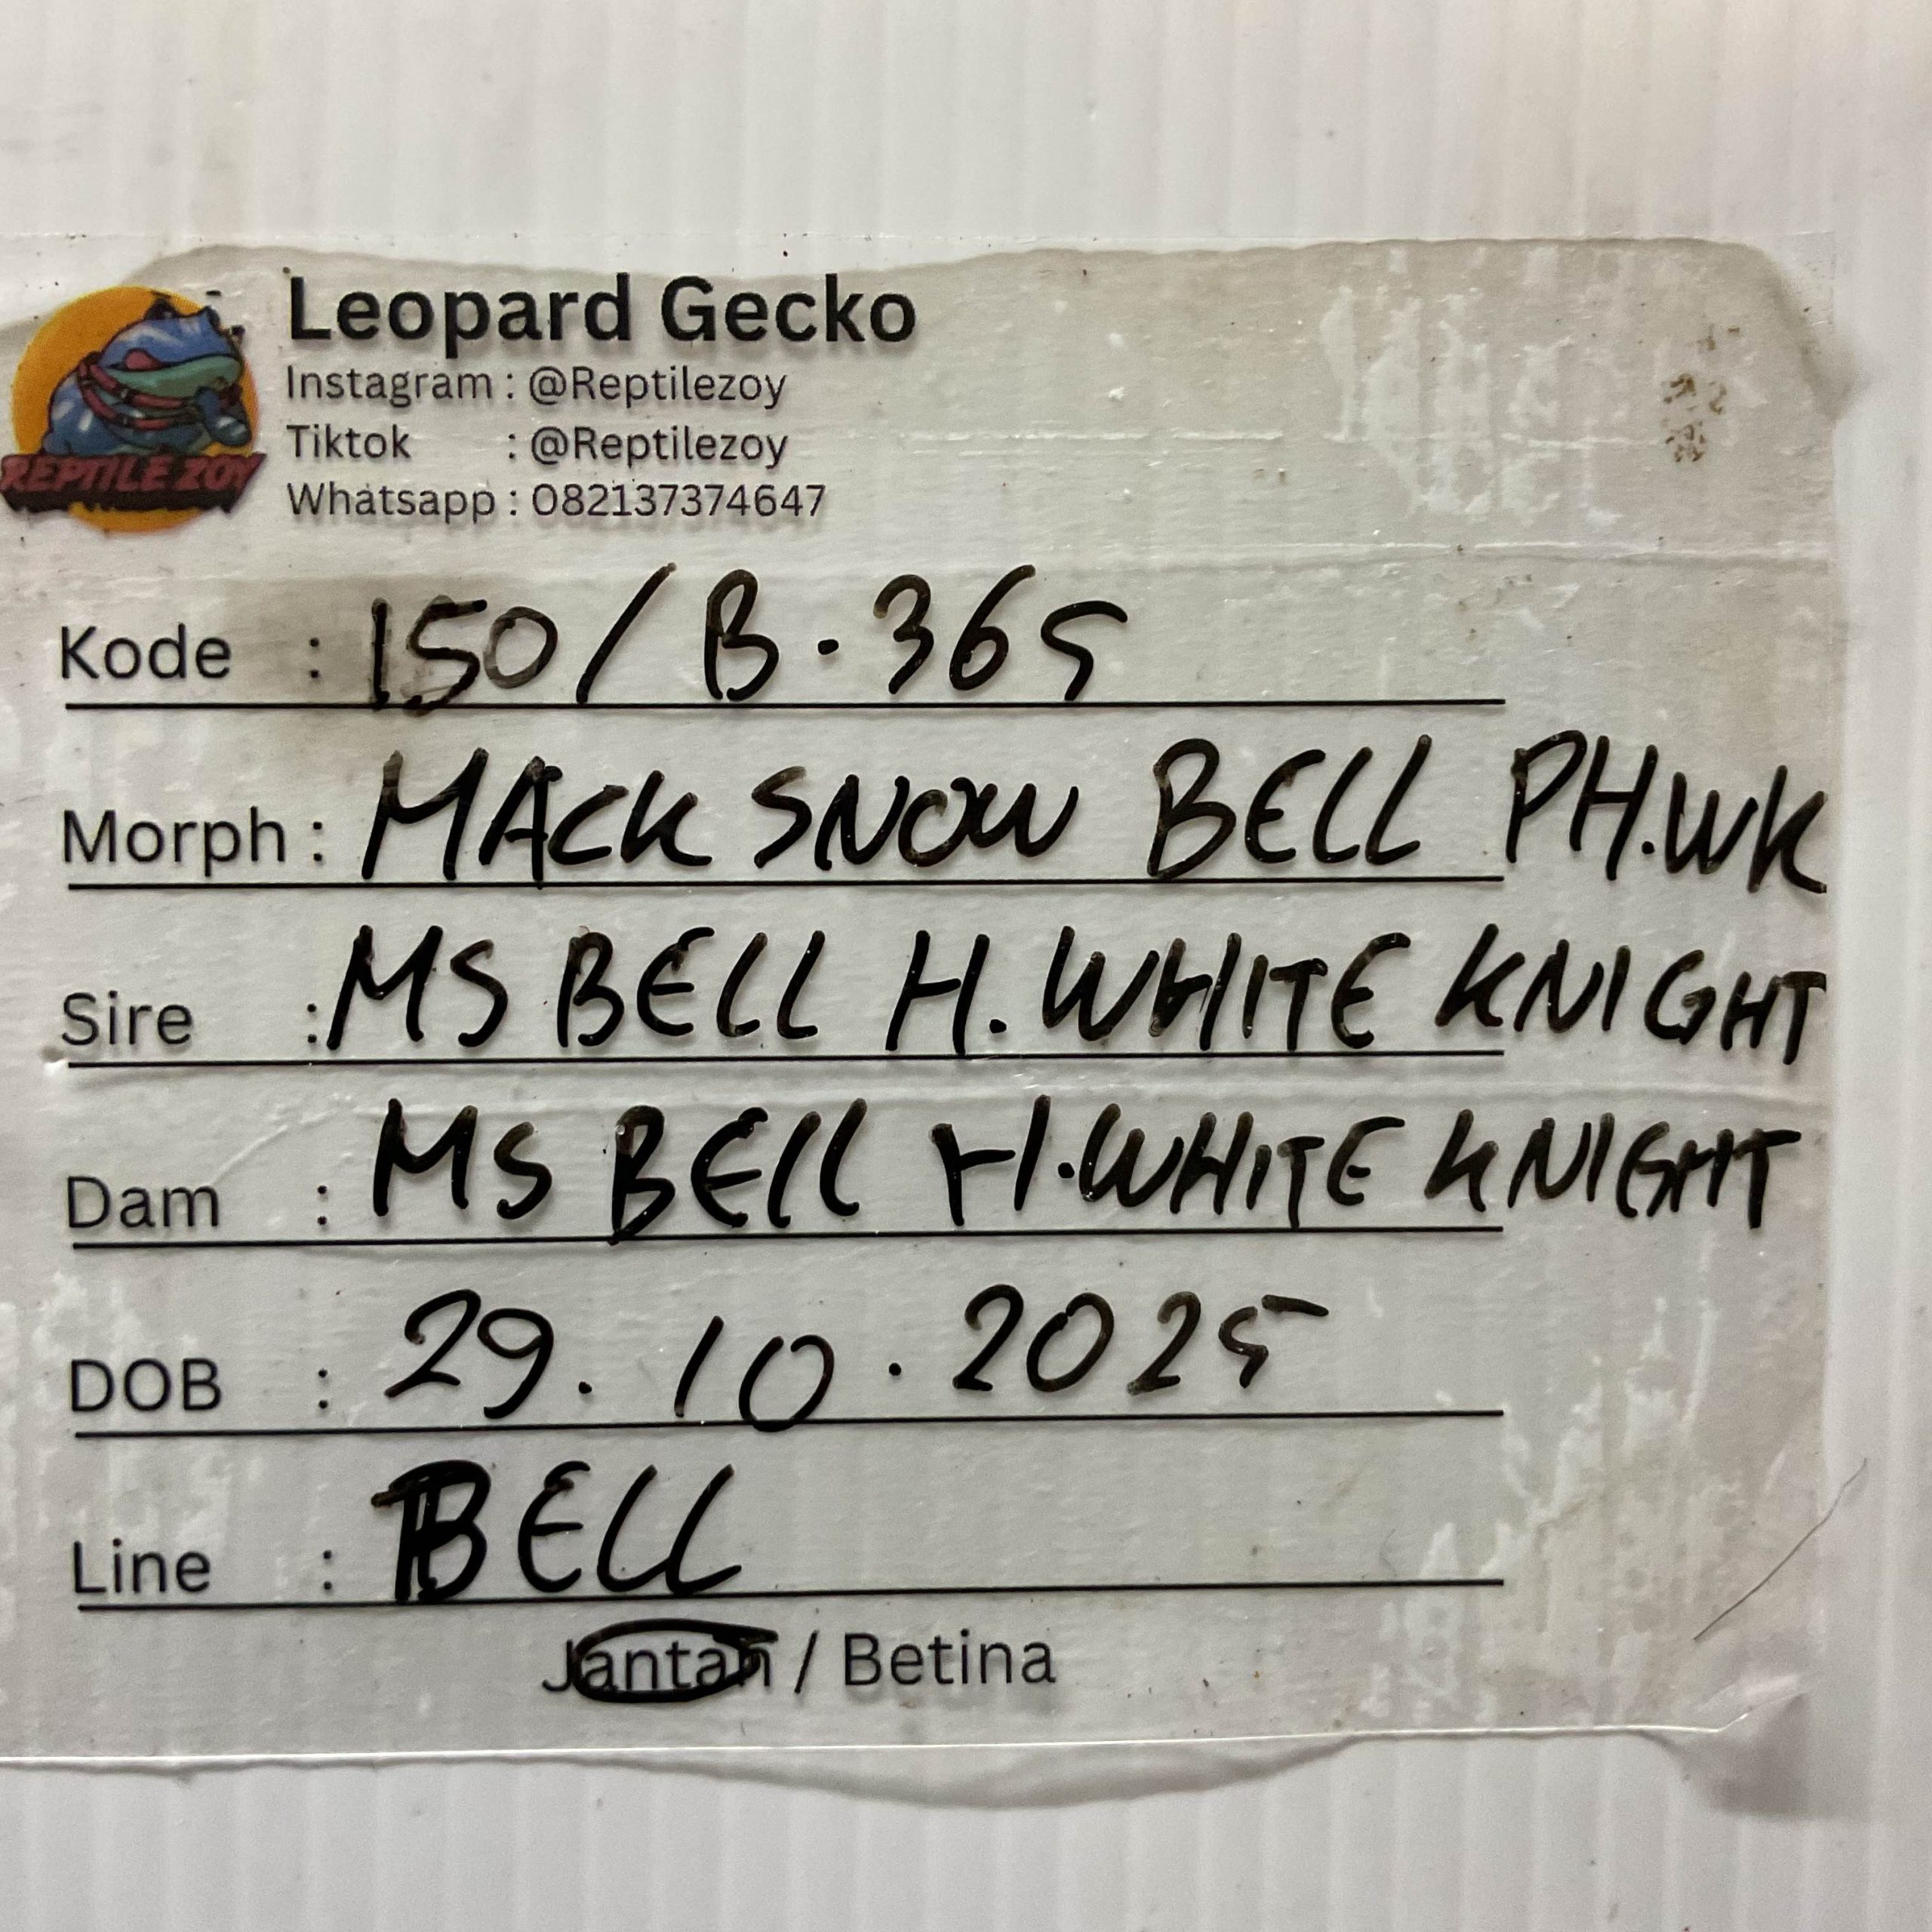 Leopard Gecko
Instagram : @Reptilezoy
Tiktok : @Reptilezoy
Whatsapp : 082137374647
REPTILE ZOY
Kode : 150/B.365
Morph : MACK SNOW BELL PH.WK
Sire : MS BELL H. WHITE KNIGHT
Dam : MS BELL H. WHITE KNIGHT
DOB : 29.10.2025
Line : BELL
Jantan / Betina